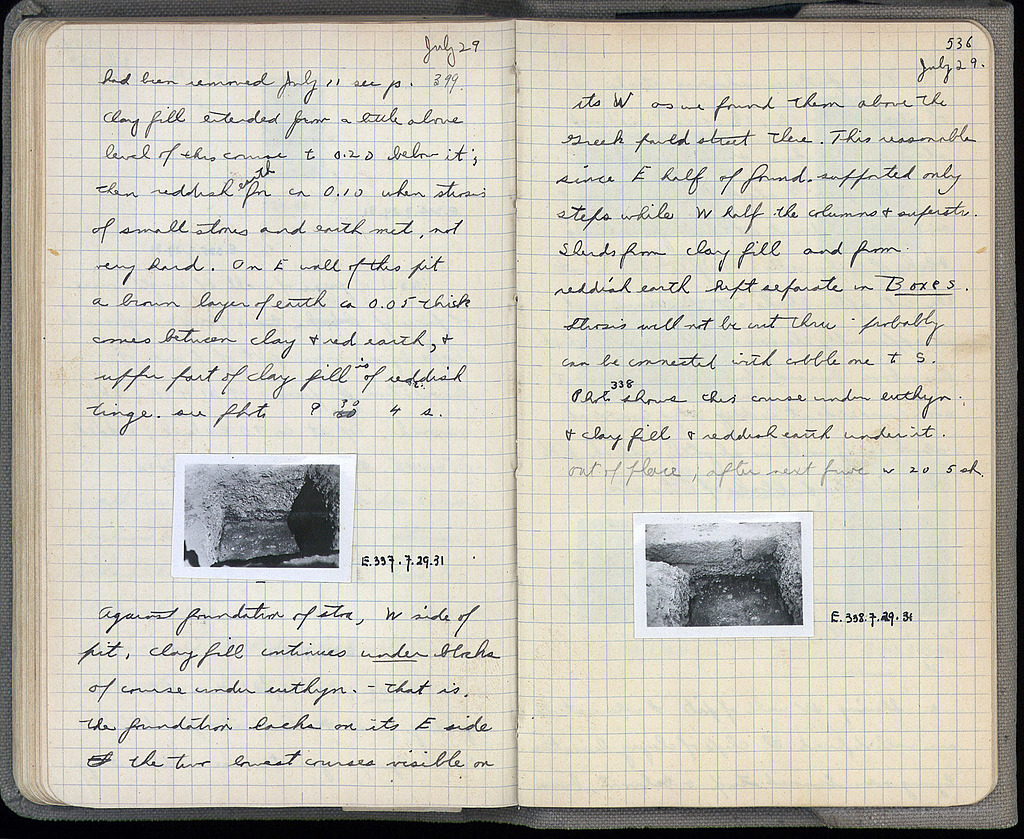 July 29
had been removed July 11 see p. 399.
Clay fill extended from a little above
level of this course to 0.20 below it;
then reddish earth for ca 0.10 when strosis
of small stones and earth met, not
very hard. On E wall of this pit
a brown layer of earth ca 0.05 thick
comes between clay & red earth, &
upper part of clay fill is of reddish
tinge. see photo 9 30 4 s.
E.337.7.29.31
Against foundation of stoa, W side of
pit, clay fill continues under blocks
of course under euthyn. - That is,
the foundation lacks on its E side
the two lowest courses visible on
536
July 29.
its W as we found them above the
Greek paved street there. This reasonable
since E half of found. supported only
steps while W half the columns & superstr.
Sherds from clay fill and from
reddish earth kept separate in Boxes.
Strosis will not be cut thru - probably
can be connected with cobble one to S.
Photo 338 shows this course under euthyn.
& clay fill & reddish earth under it.
out of place; after next five w 20 5 sh.
E.338.7.29.31